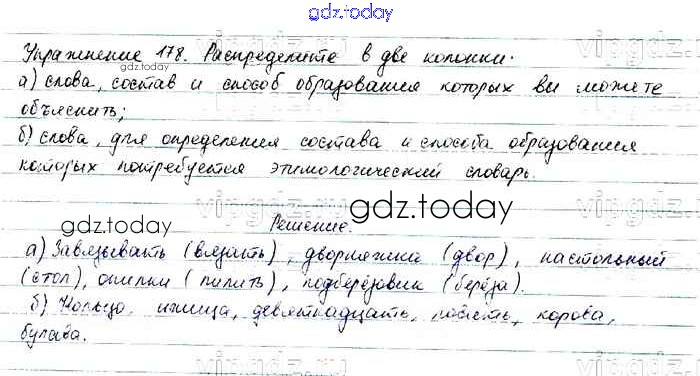 gdz.today
Упражнение 178. Распределите в две колонки.
gdz.today
а) слова, состав и способ образования которых вы можете
объяснить;
б) слова, для определения состава и способа образования
которых потребуется этимологический словарь.
gdz.today
gdz.today
Решение.
а) Завязывать (вязать), дворняжика (двор), настольный
(стол), опилки (пилить), подберёзовик (берёза).
б) Кольцо, девятнадцать, корова,
булава.
vipgdz.ru